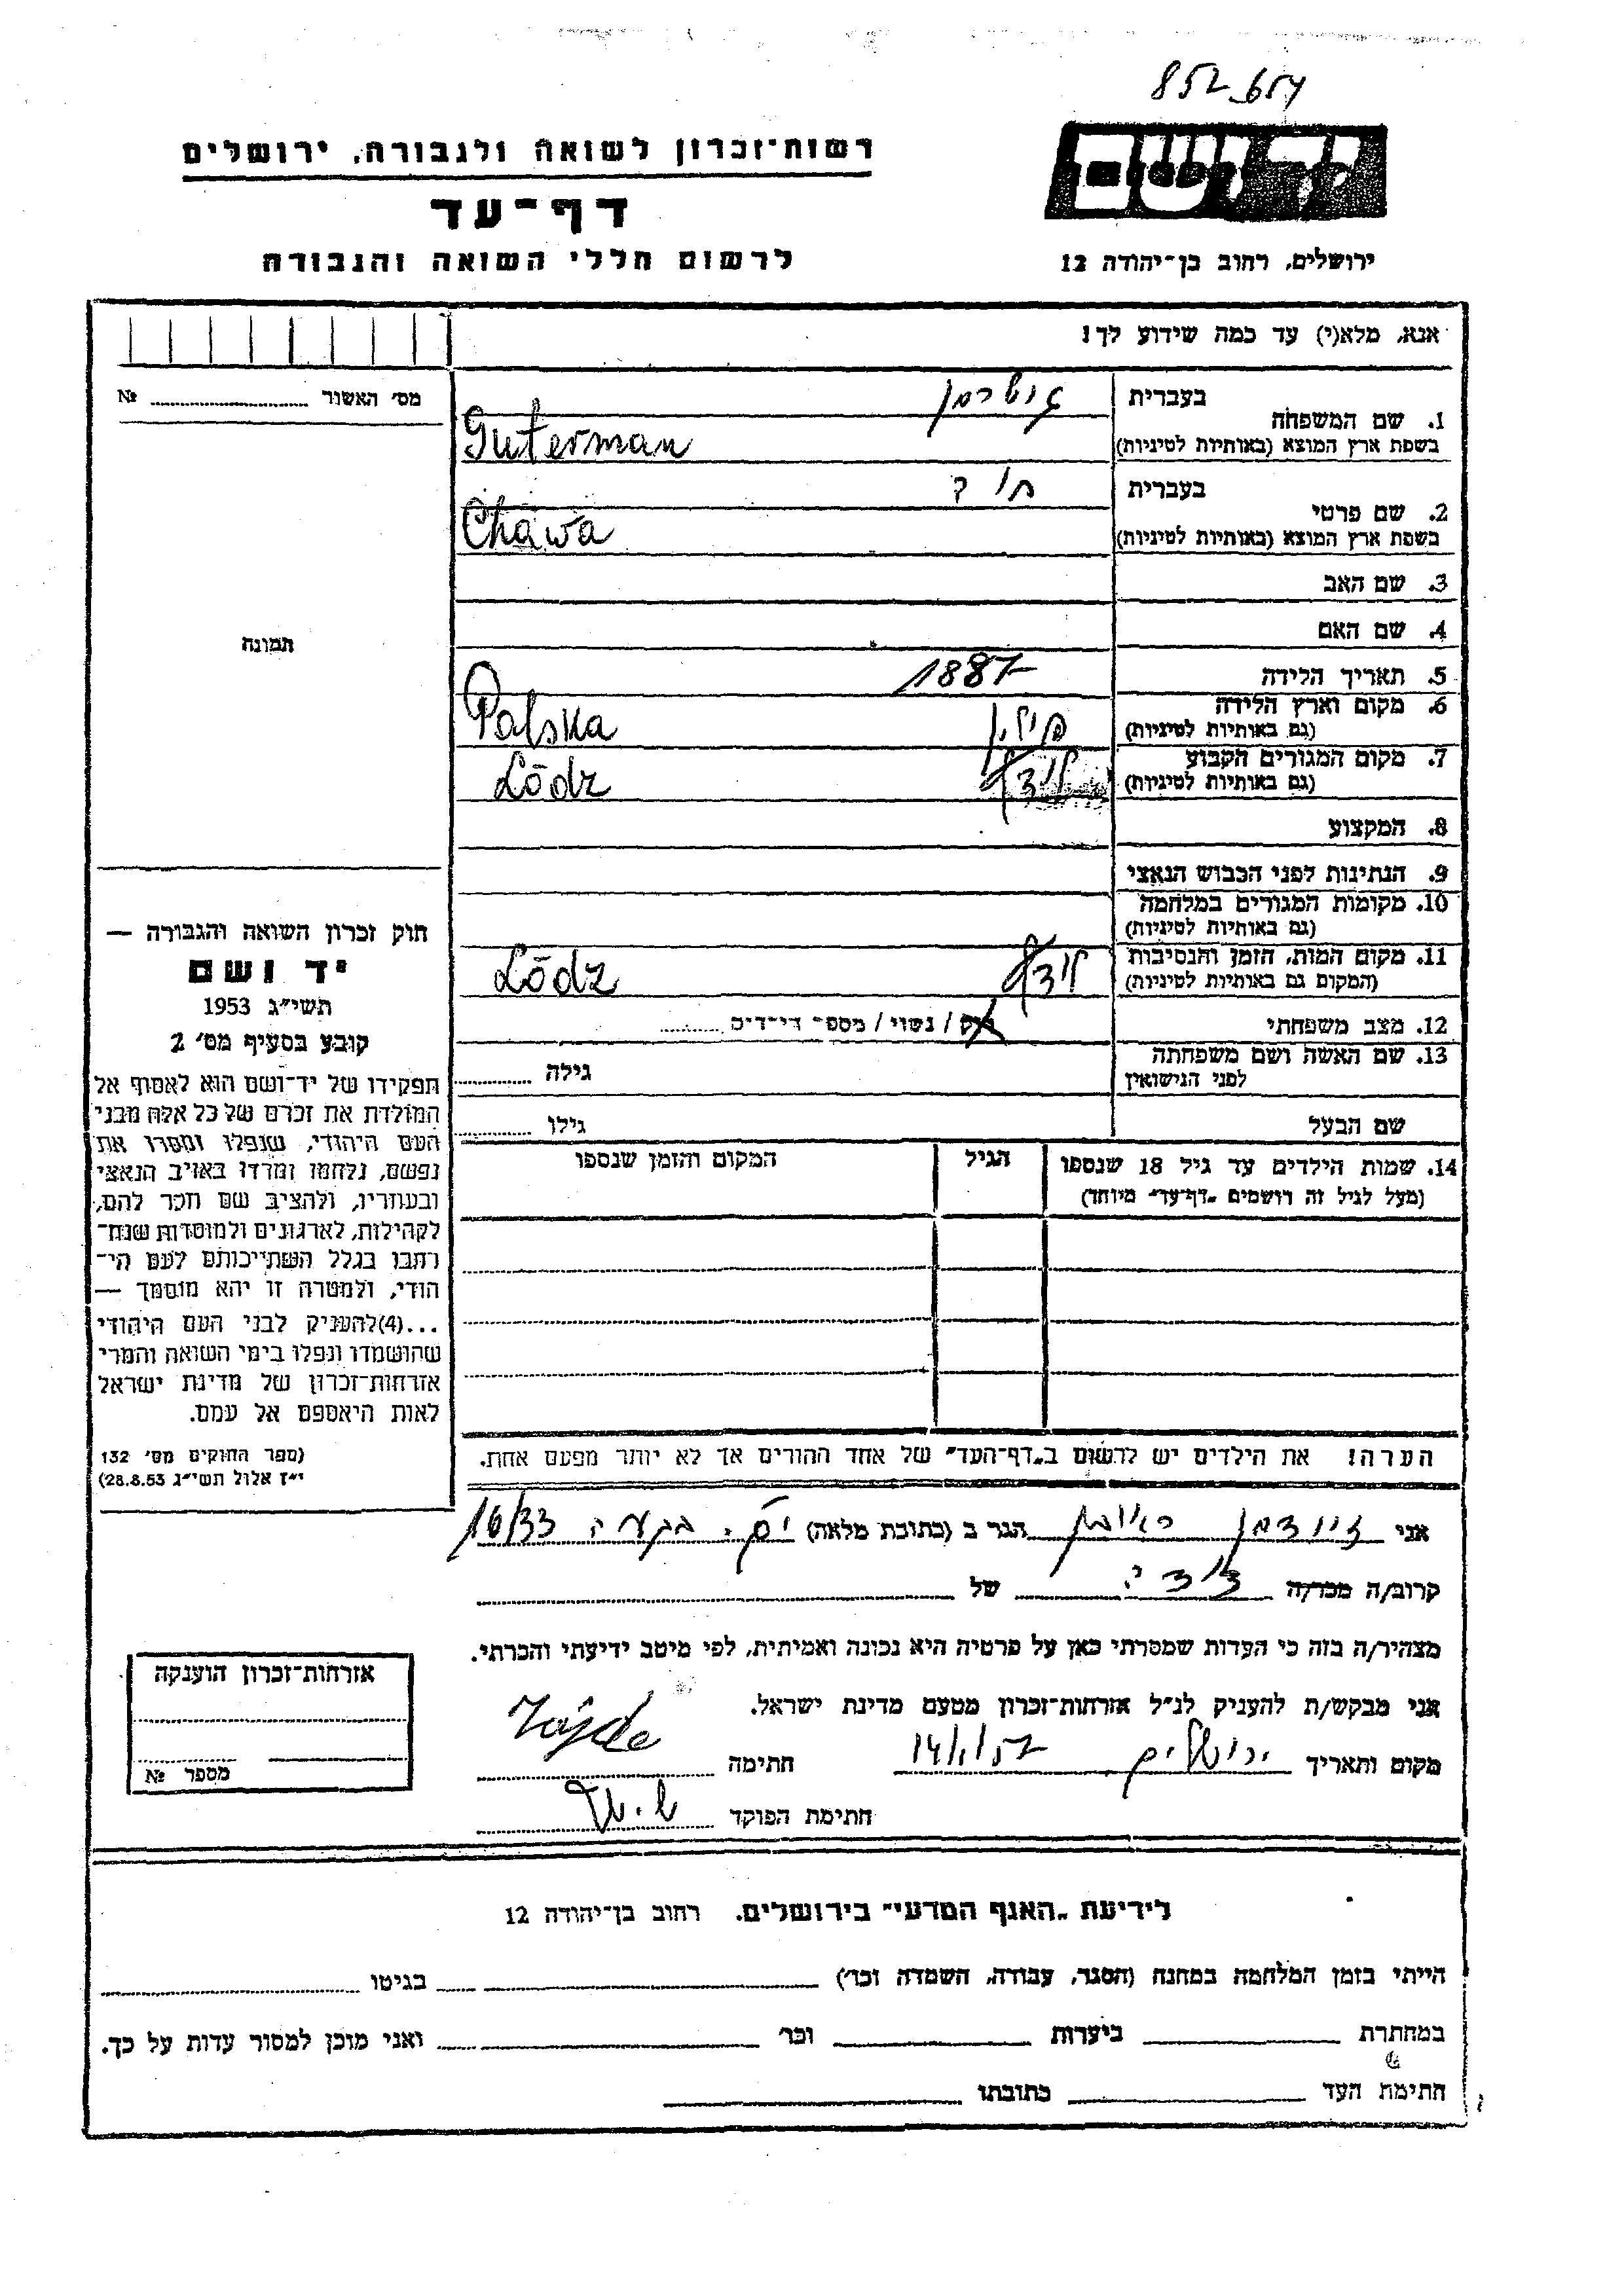 852 654
יד ושם
רשות־זכרון לשואה ולגבורה, ירושלים
דף־עד
לרשום חללי השואה והגבורה
ירושלים, רחוב בן־יהודה 12
אנא, מלא(י) עד כמה שידוע לך!
מס׳ האשור № 
1. שם המשפחה
בעברית גוטרמן
בשפת ארץ המוצא (באותיות לטיניות) Guterman
2. שם פרטי
בעברית חוה
בשפת ארץ המוצא (באותיות לטיניות) Chawa
3. שם האב
4. שם האם
תמונה
5. תאריך הלידה 1887
6. מקום וארץ הלידה
(גם באותיות לטיניות) פולין Polska
7. מקום המגורים הקבוע
(גם באותיות לטיניות) לודז׳ Lódz
8. המקצוע
9. הנתינות לפני הכבוש הנאצי
10. מקומות המגורים במלחמה
(גם באותיות לטיניות)
11. מקום המות, הזמן והנסיבות
(המקום גם באותיות לטיניות) לודז׳ Lódz
12. מצב משפחתי רוק / נשוי / מספר הילדים
13. שם האשה ושם משפחתה
לפני הנישואין גילה
שם הבעל גילו
14. שמות הילדים עד גיל 18 שנספו
(מעל לגיל זה רושמים „דף־עד״ מיוחד)
הגיל
המקום והזמן שנספו
הערה! את הילדים יש לרשום ב„דף־העד״ של אחד ההורים אך לא יותר מפעם אחת.
חוק זכרון השואה והגבורה —
יד ושם
תשי״ג 1953
קובע בסעיף מס׳ 2
תפקידו של יד־ושם הוא לאסוף אל
המולדת את זכרם של כל אלה מבני
העם היהודי, שנפלו ומסרו את
נפשם, נלחמו ומרדו באויב הנאצי
ובעוזריו, ולהציב שם וזכר להם,
לקהילות, לארגונים ולמוסדות שנח־
רבו בגלל השתייכותם לעם הי־
הודי, ולמטרה זו יהא מוסמך —
...(4)להעניק לבני העם היהודי
שהושמדו ונפלו בימי השואה והמרי
אזרחות־זכרון של מדינת ישראל
לאות היאספם אל עמם.
(ספר החוקים מס׳ 132
י״ז אלול תשי״ג 28.8.53)
אני זיידמן ראובן הגר ב (כתובת מלאה) ים. בקעה 16/33
קרוב/ה מכר/ה של
מצהיר/ה בזה כי העדות שמסרתי כאן על פרטיה היא נכונה ואמיתית, לפי מיטב ידיעתי והכרתי.
אני מבקש/ת להעניק לנ״ל אזרחות־זכרון מטעם מדינת ישראל.
מקום ותאריך ירושלים 14/1/57 חתימה
חתימת הפוקד
אזרחות־זכרון הוענקה
מספר №
לידיעת „האגף המדעי״ בירושלים. רחוב בן־יהודה 12
הייתי בזמן המלחמה במחנה (הסגר, עבודה, השמדה וכו׳) בגיטו
במחתרת ביערות וכו׳ ואני מוכן למסור עדות על כך.
חתימת העד כתובתו